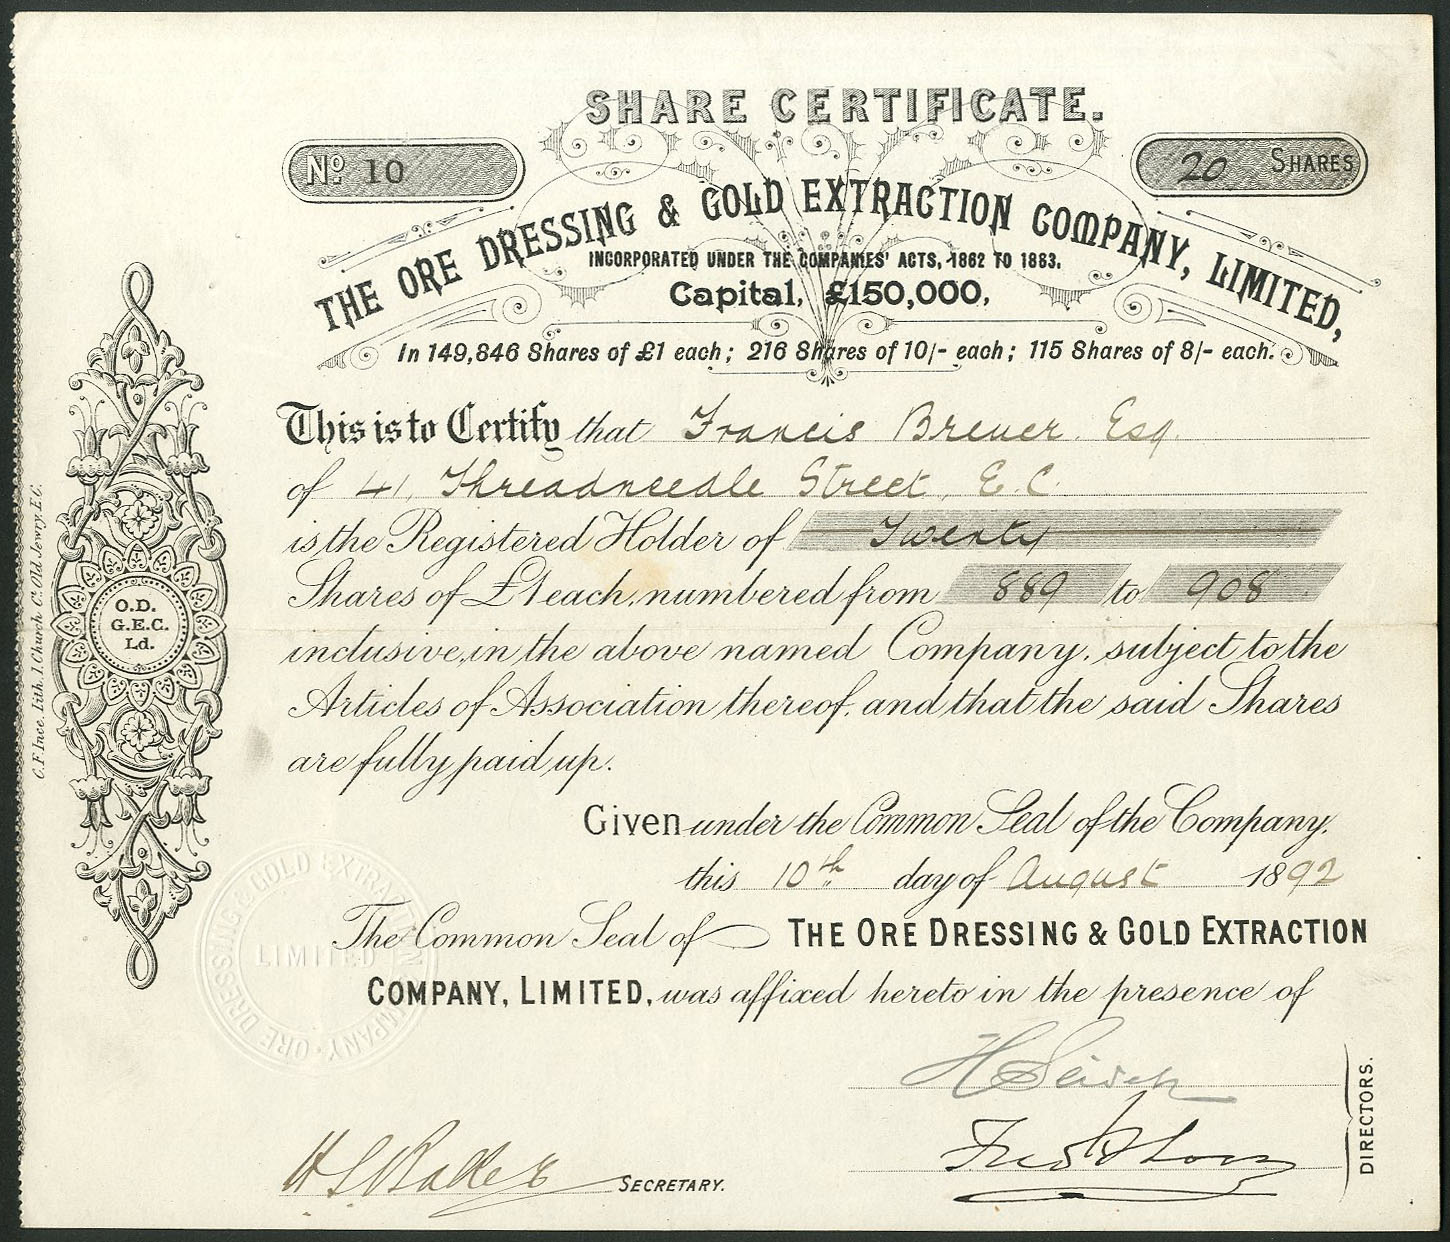 SHARE CERTIFICATE.
No. 10
20 SHARES
THE ORE DRESSING & GOLD EXTRACTION COMPANY, LIMITED,
INCORPORATED UNDER THE COMPANIES' ACTS, 1862 TO 1883.
Capital, £150,000,
In 149,846 Shares of £1 each; 216 Shares of 10/- each; 115 Shares of 8/- each.
This is to Certify that Francis Brewer. Esq.
of 41, Threadneedle Street, E.C.
is the Registered Holder of Twenty
Shares of £1 each, numbered from 889 to 908
inclusive, in the above named Company, subject to the
Articles of Association thereof, and that the said Shares
are fully paid up.
Given under the Common Seal of the Company,
this 10th day of August 1892
The Common Seal of THE ORE DRESSING & GOLD EXTRACTION
COMPANY, LIMITED, was affixed hereto in the presence of
DIRECTORS.
SECRETARY.
O.D.
G.E.C.
Ld.
C.F. Ince. Lith. 1. Church Ct. Old Jewry. E.C.
ORE DRESSING & GOLD EXTRACTION COMPANY
LIMITED